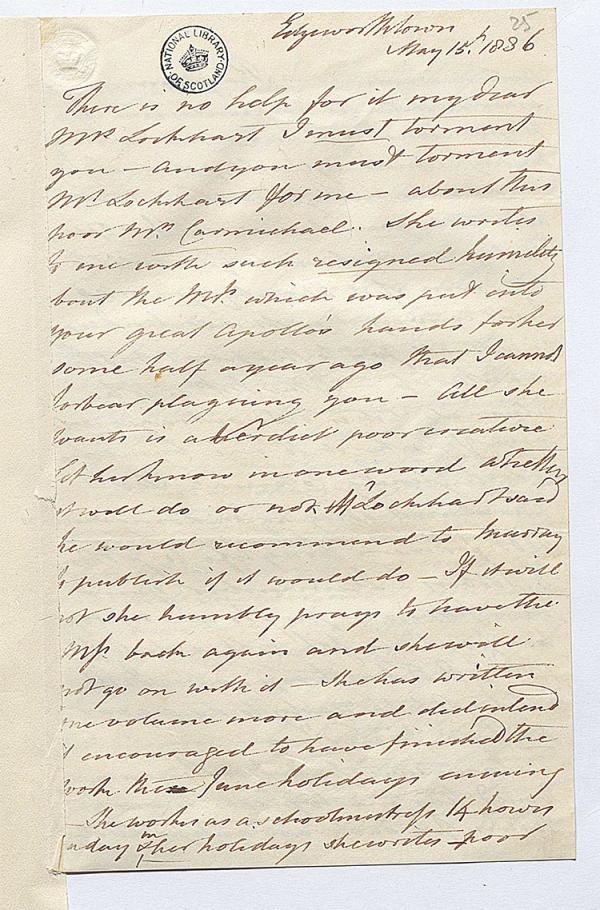 25
Edgeworthtown
May 15th 1836
NATIONAL LIBRARY
OF SCOTLAND
There is no help for it my dear
Mrs Lockhart I must torment
you – and you must torment
Mr Lockhart for me – about this
poor Mrs Carmichael. She writes
to me with such resigned humility
bout the MS. which was put into
your great Apollo's hands for her
some half a year ago that I cannot
forbear plaguing you – All she
wants is a Verdict poor creature
let her know in one word whether
it will do or not. Mr Lockhart said
he would recommend to Murray
to publish if it would do – If it will
not she humbly prays to have the
MSS back again and she will
not go on with it – She has written
one volume more and did intend
if encouraged to have finished the
work the June holidays ensuing
– She works as a schoolmistress 14 hours
a day in her holidays she writes – poor